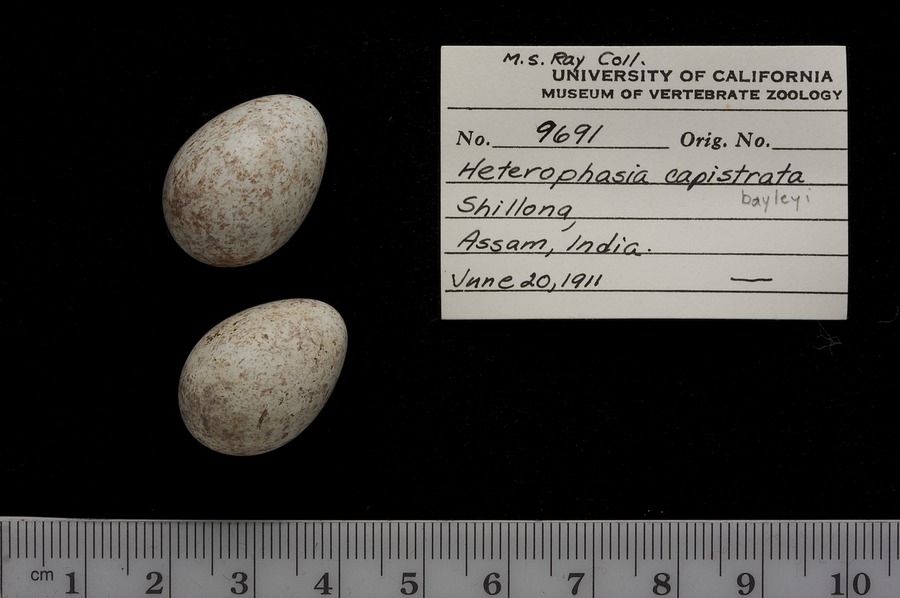 M.S. Ray Coll.
UNIVERSITY OF CALIFORNIA
MUSEUM OF VERTEBRATE ZOOLOGY
No. 9691 Orig. No.
Heterophasia capistrata
bayleyi
Shillong,
Assam, India.
June 20, 1911 —
cm 1 2 3 4 5 6 7 8 9 10